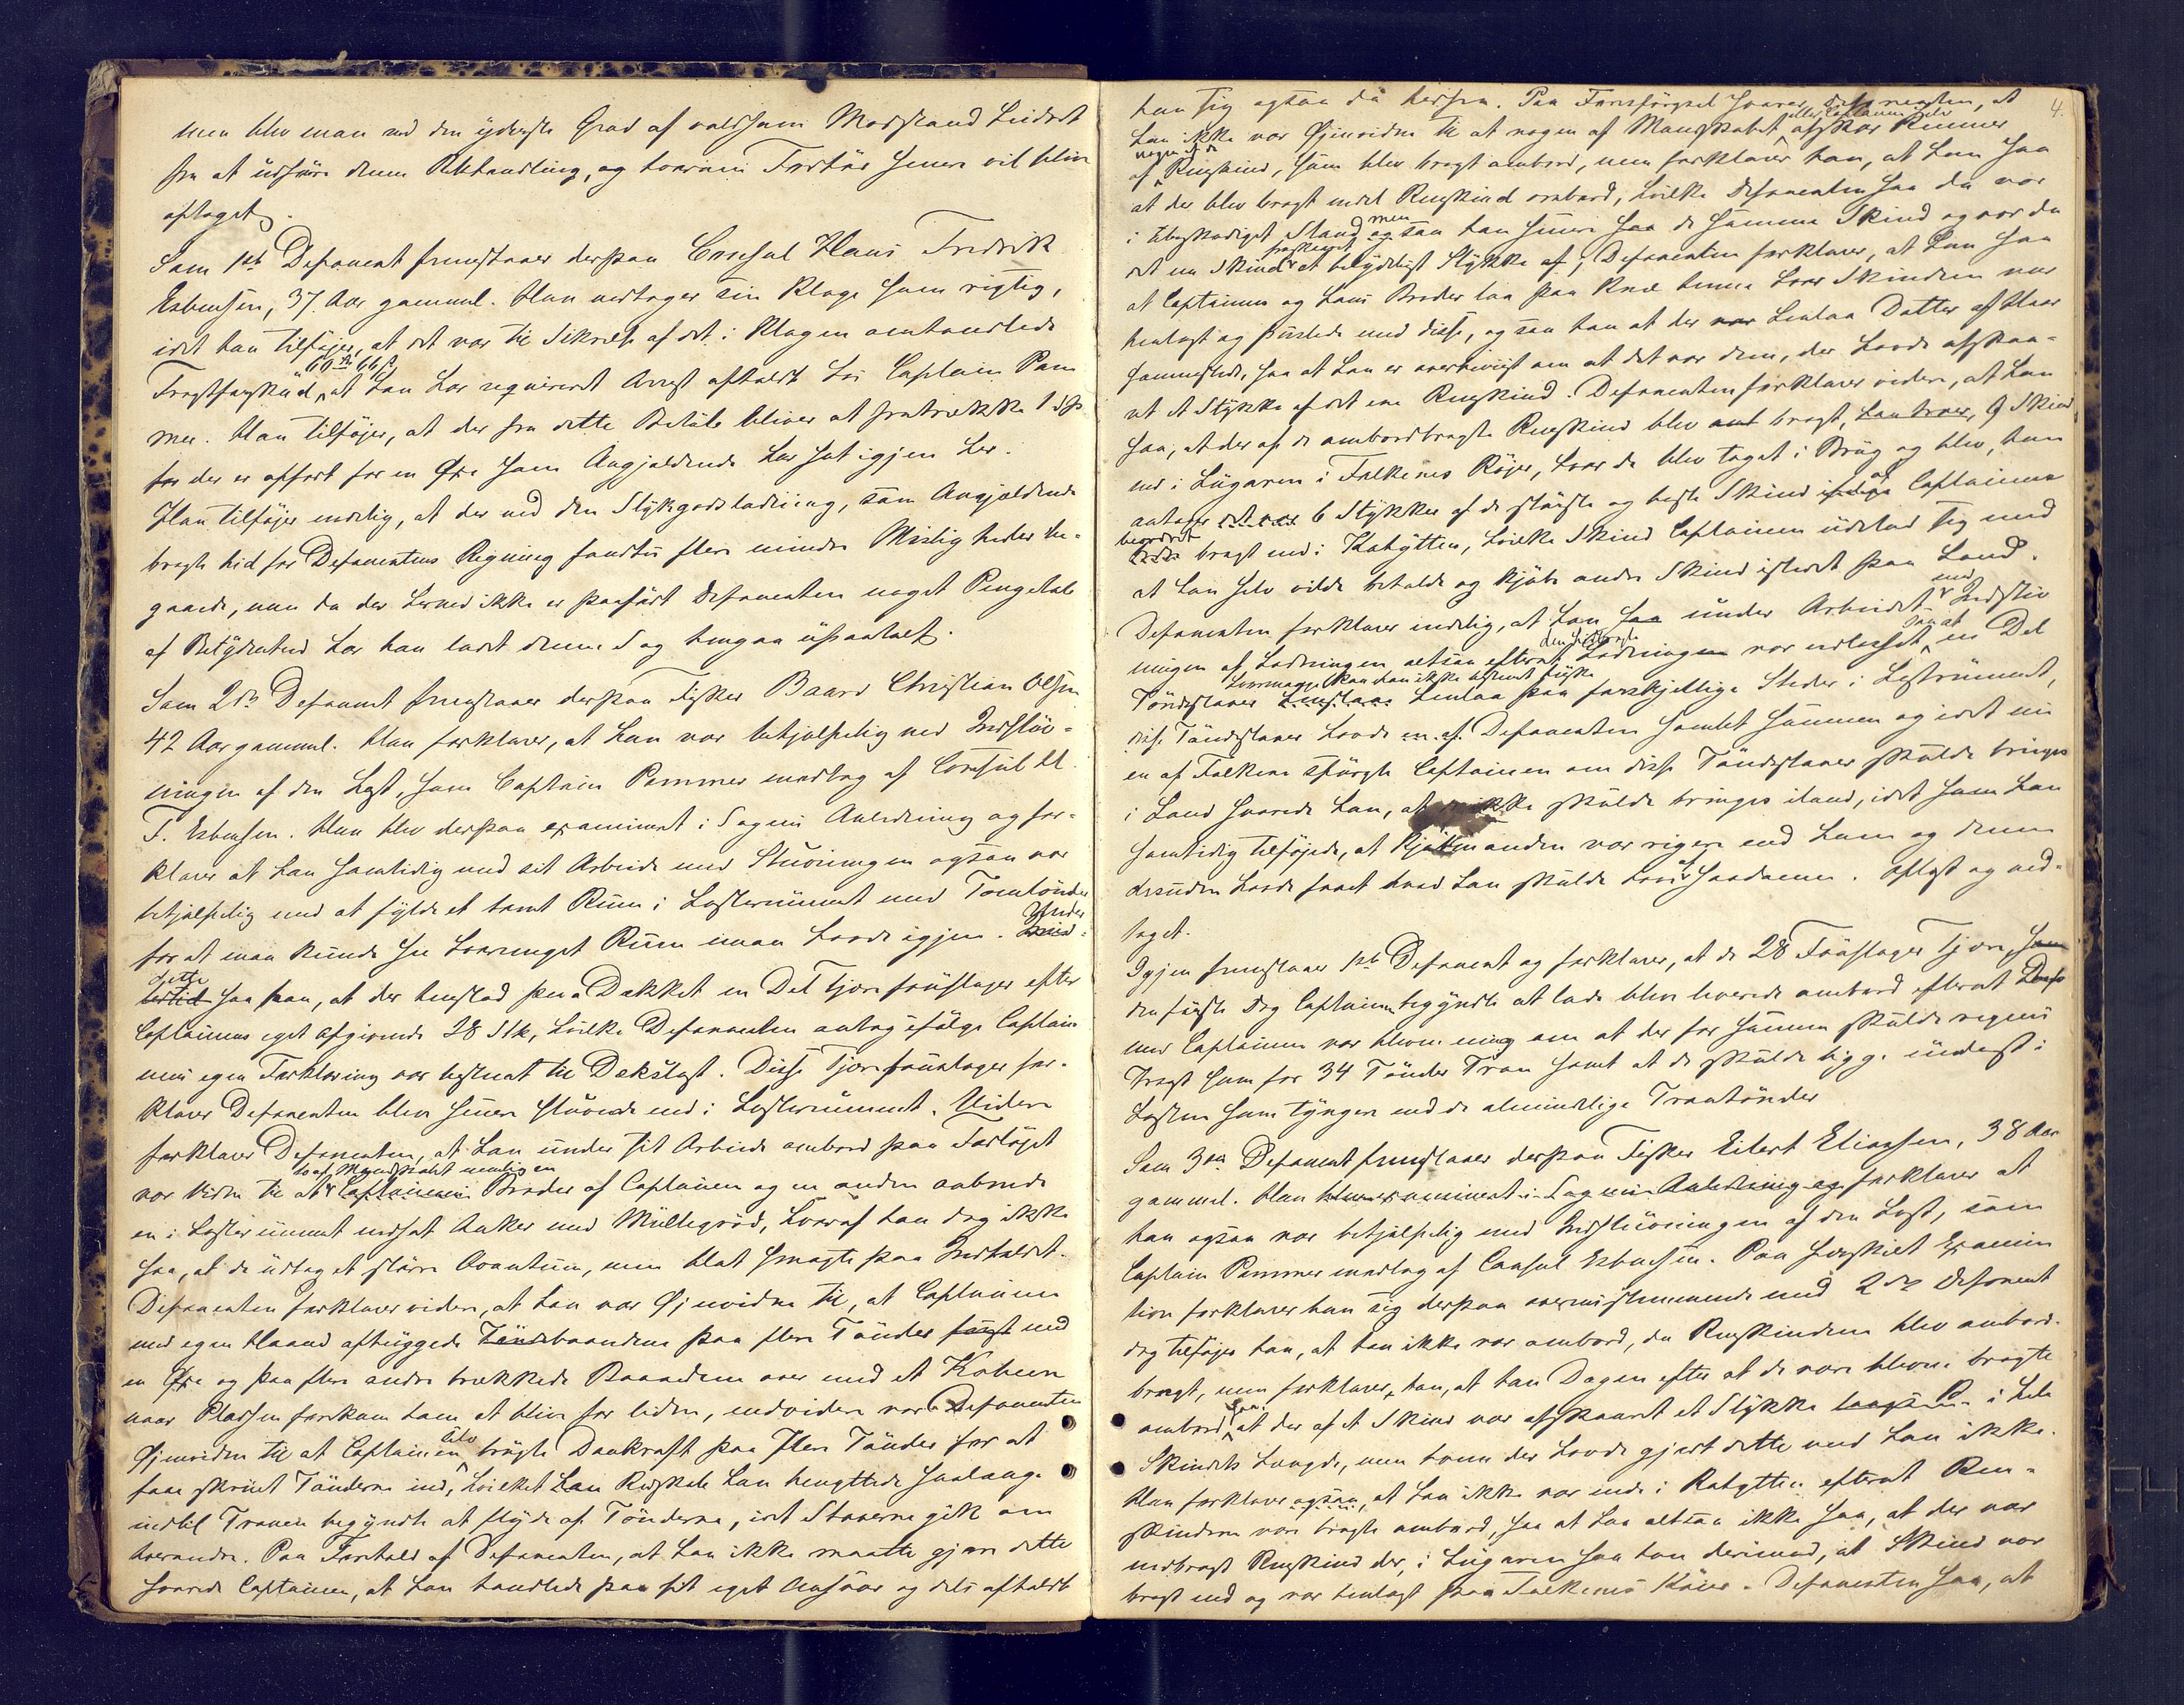 men blev man ved den yderste Grad af voldsom Modstand hindret
fra at udføre denne Rethandling, og hvorom Forhør senere vil blive
optaget.
Som 1ste Deponent fremstaaer derpaa Consul Hans Fredrik
Esbensen, 37 Aar gammel. Han vedtager sin Klage som rigtig,
idet han tilføjer, at det var til Sikrelse af det i Klagen omhandlede
Fragtforskud, at han har requireret Arrest afholdt hos Captain Pom
mer. Han tilføjer, at der fra dette Beløb bliver at fratrække 1
for der er opført for en Øxe som Angjældende har sat igjen her.
Han tilføjer endelig, at der ved den Stykgodsladning, som Angjældende
bragte hid for Deponentens Regning fandtes flere mindre Misligheder be-
gaaede, men da der herved ikke er paaført Deponenten noget Pengetab
af Betydenhed har han ladet denne Sag hengaa upaatalt.
Som 2den Deponent fremstaaer derpaa Fisker Baard Christian Olsen
42 Aar gammel. Han forklarer, at han var behjælpelig ved Indstuv-
ningen af den Last, som Captain Pommer modtog af Consul H.
F. Esbensen. Han blev derpaa examineret i Sagens Anledning og for-
klarer at han samtidig med sit Arbeide med Stuvningen ogsaa var
behjælpelig med at fylde et tomt Rum i Lasterummet med Tomtønder
for at man kunde see hvormeget Rum man havde igjen. Under
dette saa han, at der henstod paa Dækket en Del Tjærefoustager efter
Captainens eget Opgivende 28 Stk, hvilke Deponenten antog ifølge Captai
nens egen Forklaring var bestemt til Dækslast. Disse Tjærefoustager for-
klarer Deponenten blev senere stuvede ned i Lasterummet. Videre
forklarer Deponenten, at han under sit Arbeide ombord paa Fartøjet
var Vidne til at to af Mandskabet nemlig en Broder af Captainen og en anden aabnede
en i Lasterummet indsat Anker med Multegrød, hvoraf han dog ikke
saa, at de udtog et større Qvantum, men blot smagte paa Indholdet.
Deponenten forklarer videre, at han var Øjenvidne til, at Captainen
med egen Haand afhuggede Tøndebaandene paa flere Tønder først med
en Øxe og paa flere andre trækkede Baandene over med et Kobeen
naar Pladsen forekom ham at blive for liden, endvidere var Deponenten
Øjenvidne til at Captainen selv brugte Donkraft paa flere Tønder for at
faae skruet Tønderne ind, hvilket Redskab han benyttede saalænge
indtil Tranen begyndte at flyde af Tønderne, idet Staverne gik om
hverandre. Paa Forhold af Deponenten, at han ikke maatte gjøre dette
svarede Captainen, at han handlede paa sit eget Ansvar og dels afholdt
4.
han sig ogsaa da herfra. Paa Forespørgsel svarer Deponenten, at
han ikke var Øjenvidne til at nogen af Mandskabet eller Captainen selv afskar Remmer
af nogen af de Renskind, som blev bragt ombord, men forklarer han, at han saa
at der blev bragt endel Renskind ombord, hvilke Deponenten saa da var
i ubeskadiget Stand men ogsaa han senere saa de samme Skind og var da
det ene Skind fraskaaret et betydeligt Stykke af; Deponenten forklarer, at han saa
at Captainen og hans Broder laa paa Knæ henne hvor Skindene var
henlagt og puslede med disse, og saa han at der henlaa Dotter af Haar
sammesteds, saa at han er overbevist om at det var dem, der havde afskaa-
ret et Stykke af det ene Renskind. Deponenten forklarer videre, at han
saa, at der af de ombordbragte Renskind blev bragt, han troer, 9 Skind
ned i Lugaren i Folkenes Køjer, hvor de blev taget i Brug og blev, han
antager 6 Stykker af de største og bedste Skind af Captainen
beordret bragt ned i Kahytten, hvilke Skind Captainen udlod sig med
at han selv vilde beholde og kjøbe andre Skind isteden paa Land.
Deponenten forklarer endelig, at han under Arbeidet med Indstuv
ningen af Ladningen altsaa efterat den hidbragte Ladning var udlosset saa at en Del
Tøndestaver hvormange kan han ikke bestemt sige henlaa paa forskjellige Steder i Lastrummet,
disse Tøndestaver havde Deponenten samlet sammen og idet nu
en af Folkene spurgte Captainen om disse Tøndestaver skulde bringes
i Land svarede han, at de ikke skulde bringes iland, idet som han
samtidig tilføjede, at Kjøbmanden var rigere end ham og denne
desuden havde faaet hvad han skulde have af Saadanne. Oplæst og ved-
taget.
Igjen fremstaaer 1ste Deponent og forklarer, at de 28 Foustager Tjære,
den første Dag Captainen begyndte at lade blev leverede ombord efterat
med Captainen var bleven enig om at der for samme skulde regnes
Fragt som for 34 Tønder Tran samt at de skulde ligge underst i
Lasten som tyngere end de almindelige Trantønder
Som 3die Deponent fremstaaer derpaa Fisker Eilert Eliassen, 38 Aar
gammel. Han blev examineret i Sagens Anledning og forklarer at
han ogsaa var behjælpelig med Indstuvningen af den Last, som
Captain Pommer modtog af Consul Esbensen. Paa særskilt Examina
tion forklarer han sig derpaa overensstemmende med 2den Deponent
dog tilføjer han, at han ikke var ombord, da Renskindene blev ombord-
bragt, men forklarer han, at han Dagen efter at de vare blevne bragte
ombord saa at der af et Skind var afskaaret et Stykke i hele
Skindets Længde, men hvem der havde gjort dette ved han ikke.
Han forklarer ogsaa, at han ikke var inde i Kahytten efterat Ren-
skindene vare bragte ombord, saa at han altsaa ikke saa, at der var
nedbragt Renskind der, i Lugaren saa han derimod, at Skind var
bragt ned og var henlagt paa Folkenes Køier. Deponenten saa, at